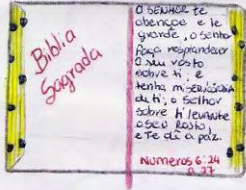 Biblia
Sagrada
O SENHOR te
abençoe e te
guarde, o senho
faça resplandecer
o seu rosto
sobre ti, e
tenha misericórdia
de ti, o Senhor
sobre ti levante
o seu Rosto,
e Te dê a paz.
Numeros 6:24
a 27